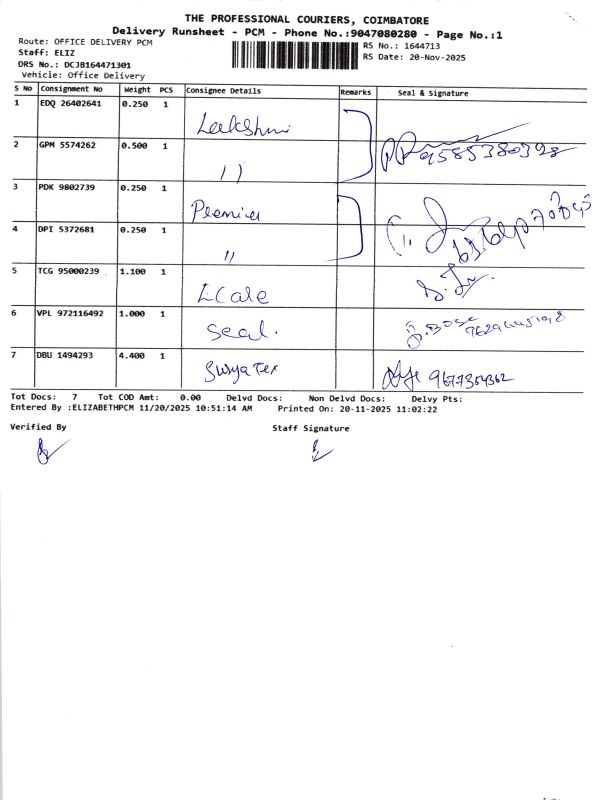 THE PROFESSIONAL COURIERS, COIMBATORE
Delivery Runsheet - PCM - Phone No.:9047080280 - Page No.:1
Route: OFFICE DELIVERY PCM
Staff: ELIZ
DRS No.: DCJB164471301
Vehicle: Office Delivery
RS No.: 1644713
RS Date: 20-Nov-2025
S No Consignment No Weight PCS Consignee Details Remarks Seal & Signature
1 EDQ 26402641 0.250 1
2 GPM 5574262 0.500 1 11 9585380398
3 PDK 9802739 0.250 1 Premier
4 DPI 5372681 0.250 1 11
5 TCG 95000239 1.100 1
6 VPL 972116492 1.000 1 Seal. J. Bose
7 DBU 1494293 4.400 1 Surya Tex
Tot Docs: 7 Tot COD Amt: 0.00 Delvd Docs: Non Delvd Docs: Delvy Pts:
Entered By :ELIZABETHPCM 11/20/2025 10:51:14 AM Printed On: 20-11-2025 11:02:22
Verified By Staff Signature